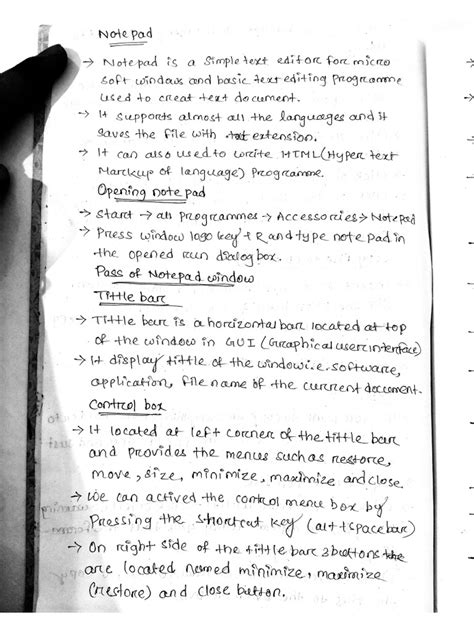 Notepad
→ Notepad is a simple text editor for micro
soft windows and basic text editing programme
used to creat text document.
→ It supports almost all the languages and it
saves the file with txt extension.
→ It can also used to write HTML(Hyper text
Markup of language) Programme.
Opening note pad
→ Start → all programmes → Accessories → Notepad
→ Press window logo key + R and type note pad in
the opened run dialog box.
Pass of Notepad window
Tittle bar
→ Tittle bar is a horizontal bar located at top
of the window in GUI (Graphical user interface)
→ It display tittle of the window i.e. software,
application, file name of the current document.
Control box
→ It located at left corner of the tittle bar
and provides the menus such as restore,
move, size, minimize, maximize and close.
→ We can actived the control menu box by
Pressing the shortcut key (alt + spacebar)
→ On right side of the tittle bar 3 buttons
are located named minimize, maximize
(restore) and close button.